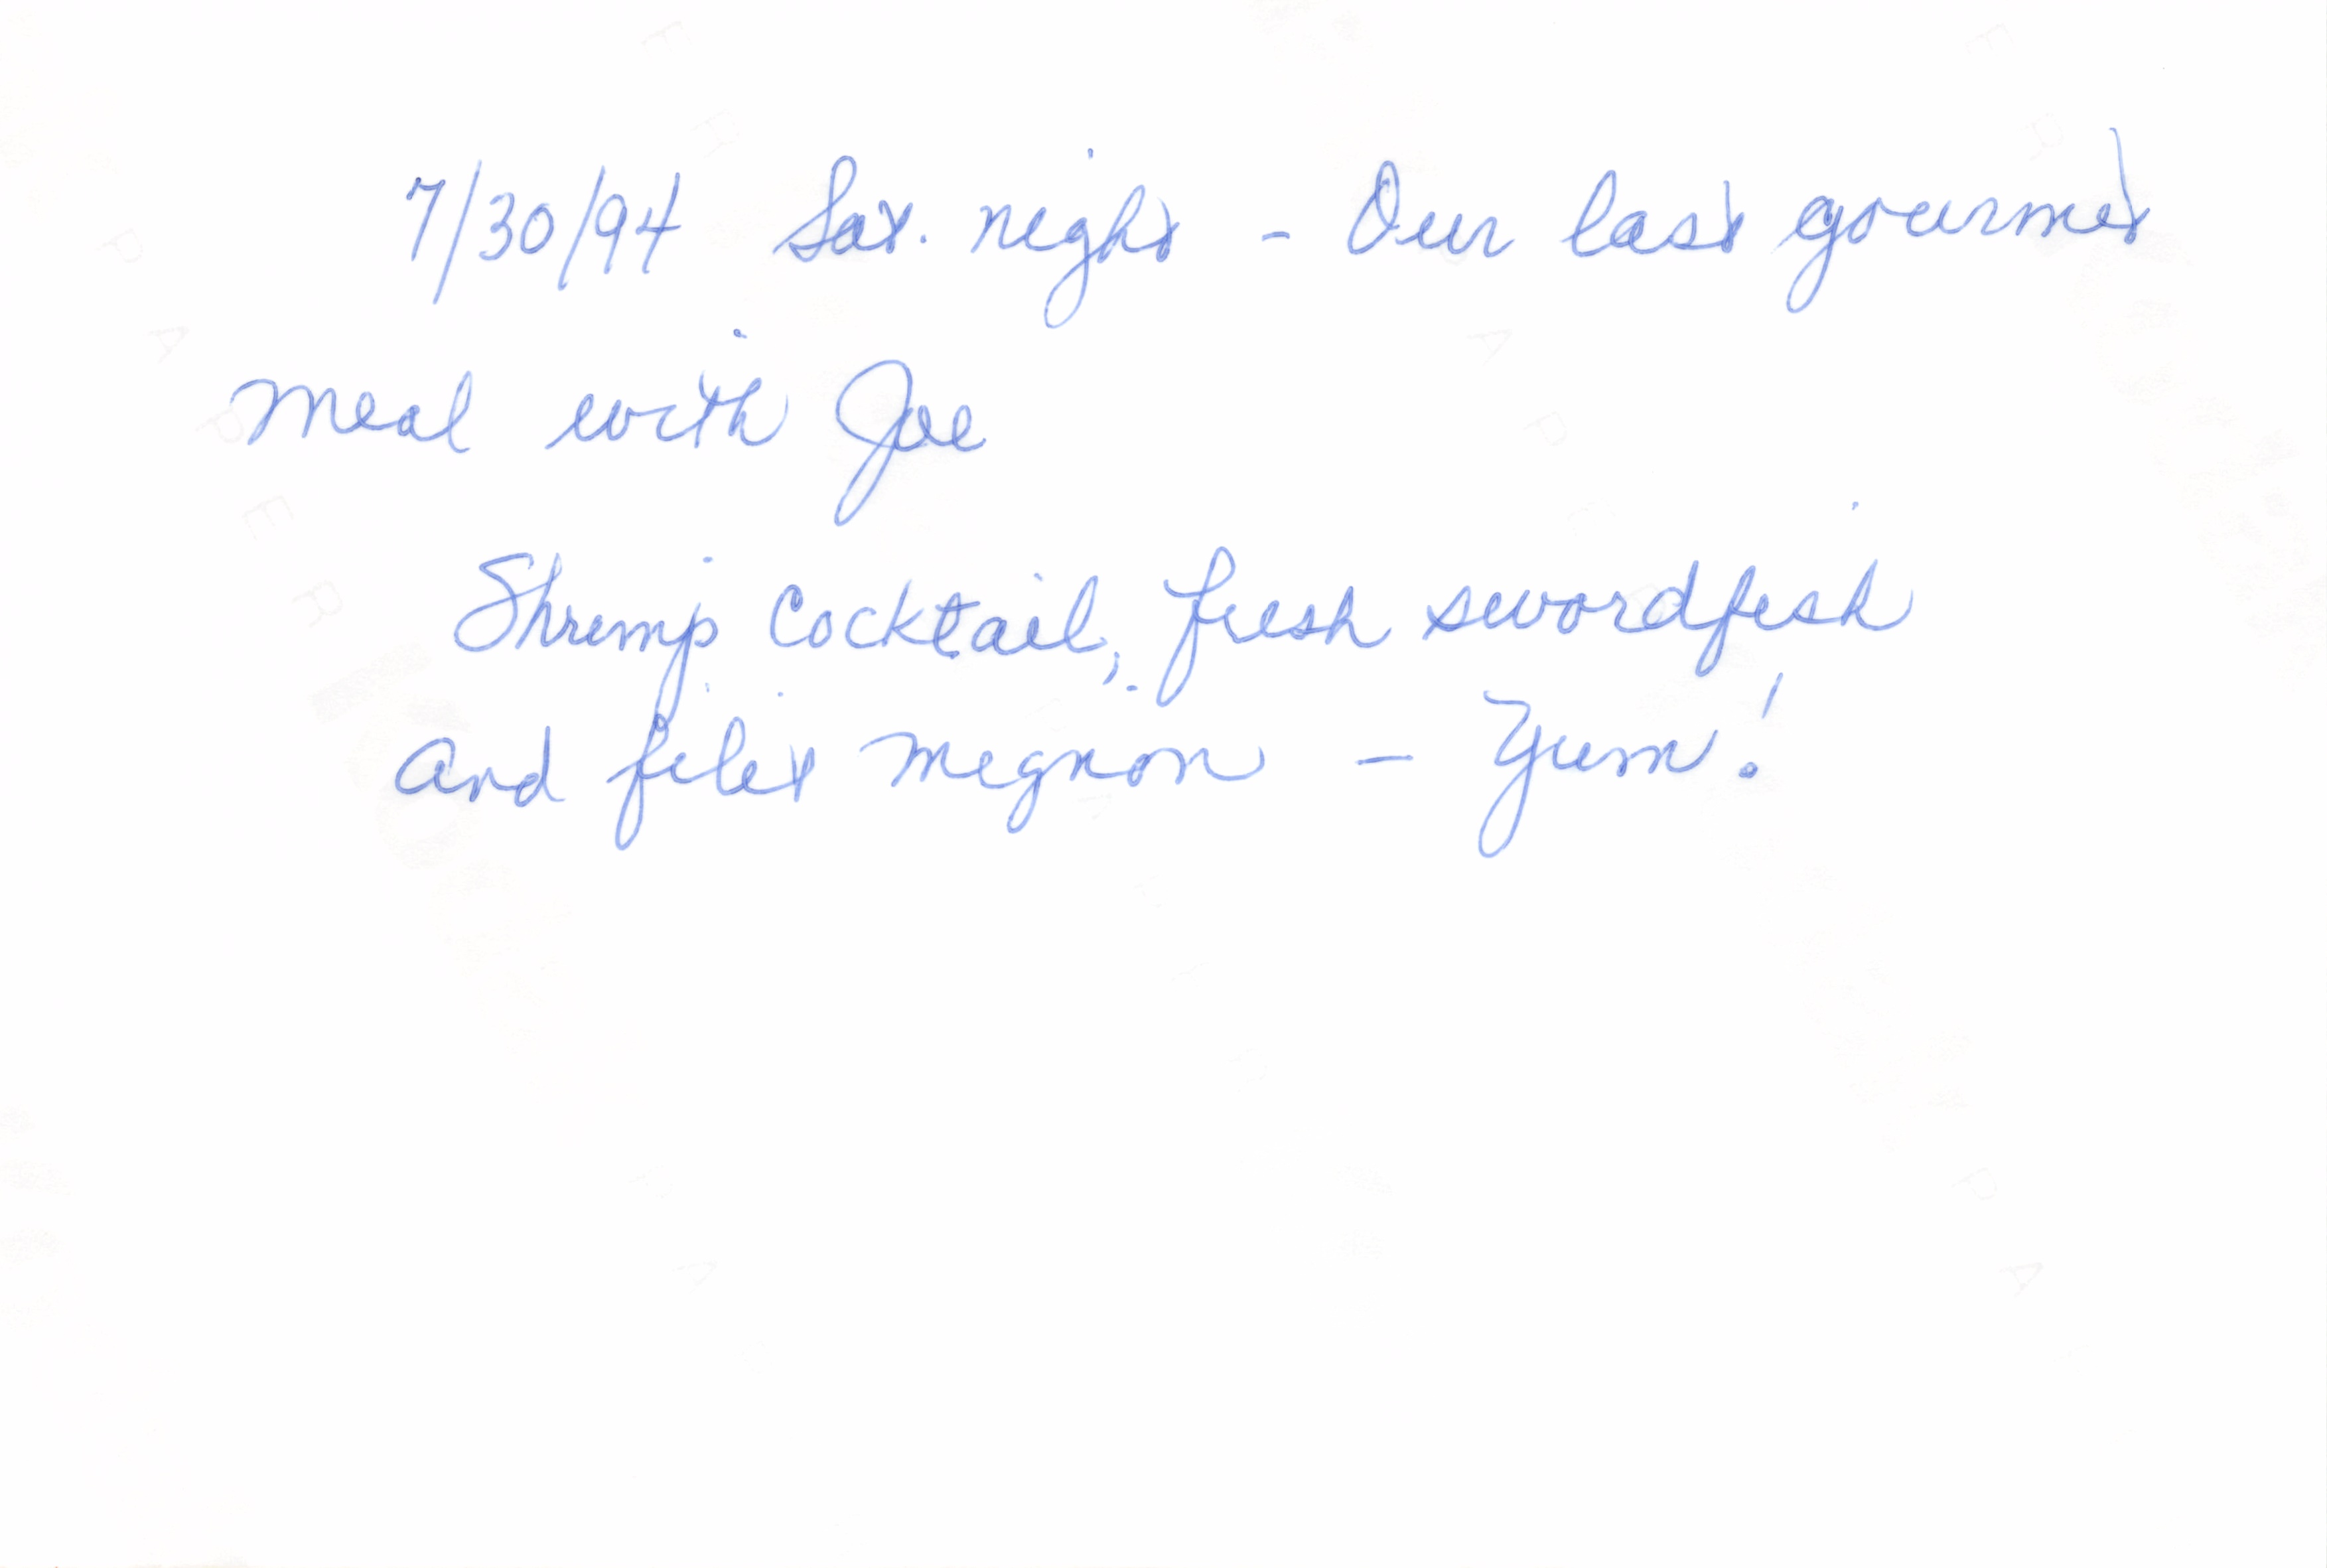 7/30/94 Sat. night - Our last gourmet
meal with Joe
Shrimp Cocktail, fresh swordfish
and filet mignon - Yum!